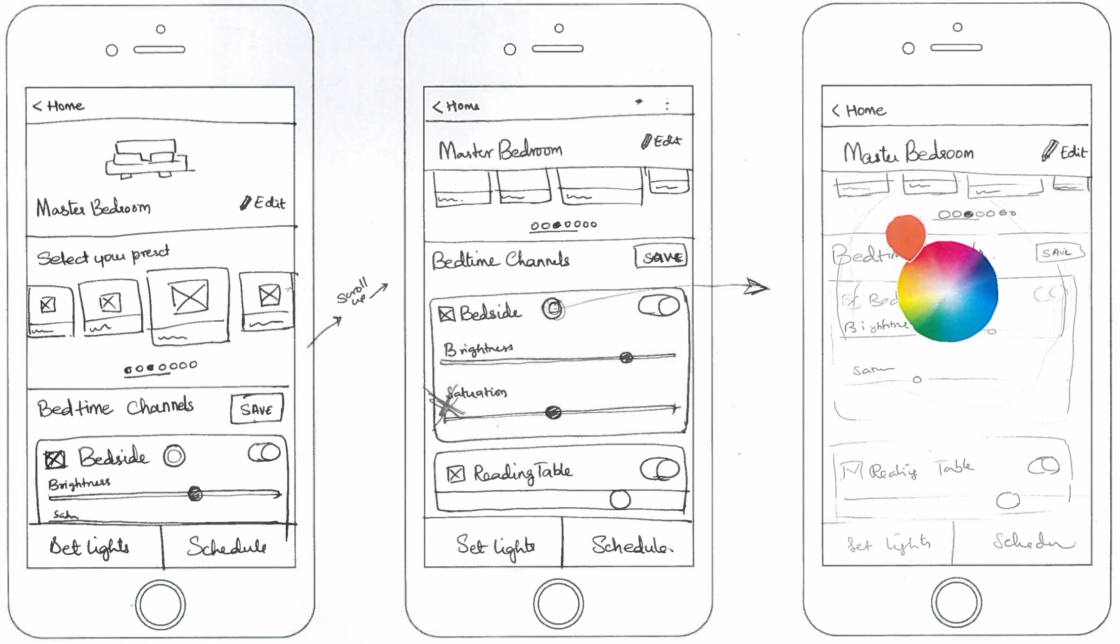 < Home
Master Bedroom
Edit
Select your preset
Bedtime Channels
SAVE
Bedside
Brightness
Satu
Set Lights
Schedule
Scroll
up
< Home
Master Bedroom
Edit
Bedtime Channels
SAVE
Bedside
Brightness
Satuation
Reading Table
Set Lights
Schedule.
< Home
Master Bedroom
Edit
Bedtim
SAVE
Bed
Brightne
Reading Table
Set Lights